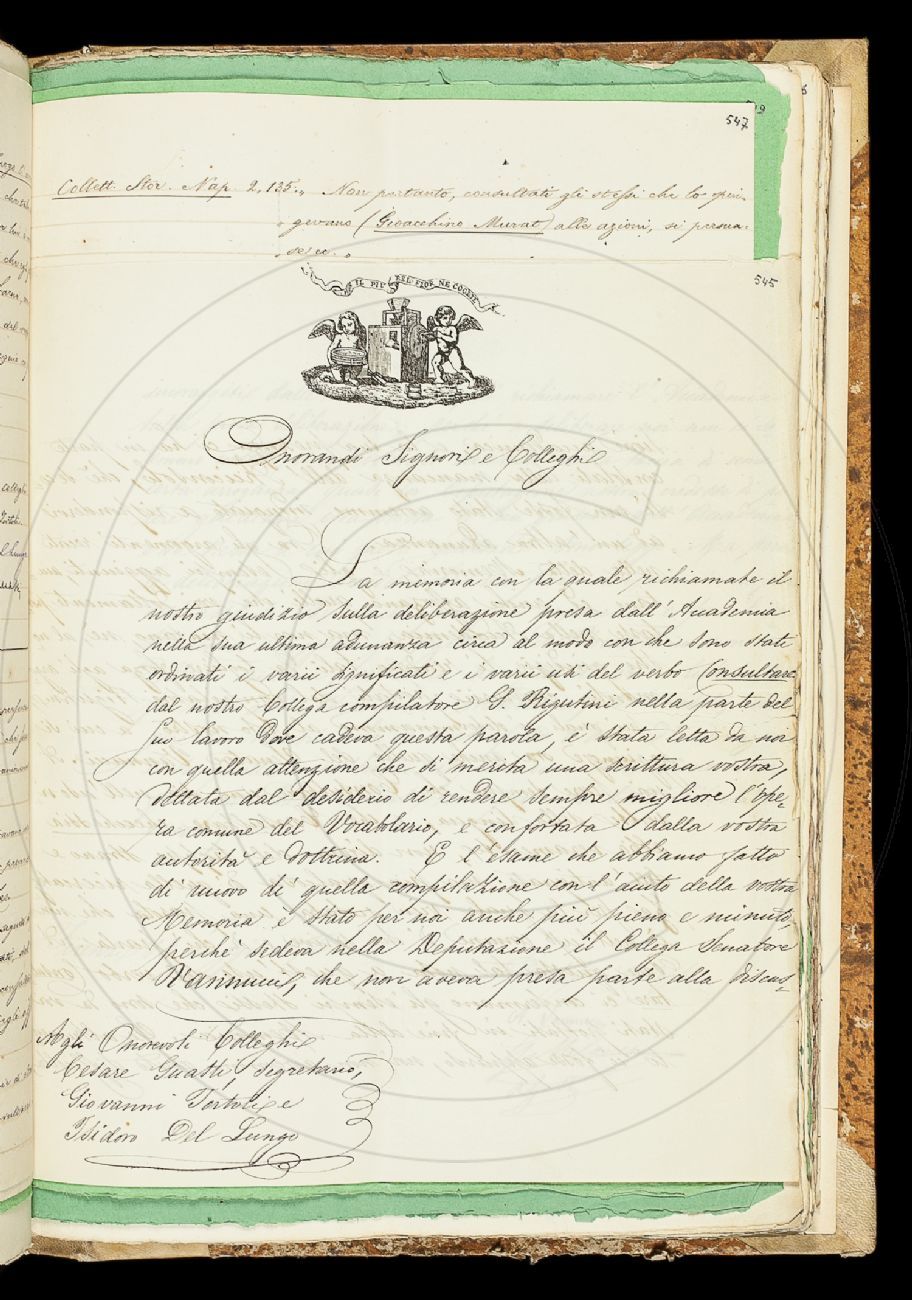 547
Collett. Stor. Nap. 2, 135. „ Non pertanto, consultati gli stessi che lo spin-
„ gevano (Gioacchino Murat) alle azioni, si persua-
„ se ec. „
545
IL PIÙ BEL FIOR NE COGLIE
Onorandi Signori e Colleghi
La memoria con la quale richiamate il
nostro giudizio sulla deliberazione presa dall'Accademia
nella sua ultima adunanza circa al modo con che sono stati
ordinati i varii significati e i varii usi del verbo Consultare
dal nostro Collega compilatore G. Rigutini nella parte del
suo lavoro dove cadeva questa parola, è stata letta da noi
con quella attenzione che si merita una scrittura vostra,
dettata dal desiderio di rendere sempre migliore l'ope-
ra comune del Vocabolario, e confortata dalla vostra
autorità e dottrina. E l'esame che abbiamo fatto
di nuovo di quella compilazione con l'aiuto della vostra
Memoria è stato per noi anche più pieno e minuto,
perchè sedeva nella Deputazione il Collega Senatore
Vannucci, che non aveva presa parte alla discus-
Agli Onorevoli Colleghi
Cesare Guasti, segretario,
Giovanni Tortoli e
Isidoro Del Lungo